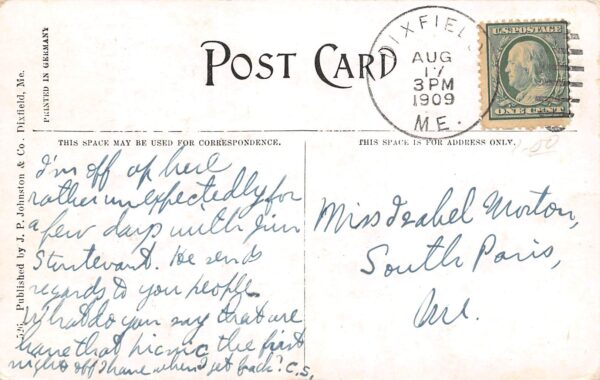 POST CARD
DIXFIELD
AUG
17
3 PM
1909
ME.
U.S. POSTAGE
ONE CENT
PRINTED IN GERMANY
Published by J. P. Johnston & Co., Dixfield, Me.
THIS SPACE MAY BE USED FOR CORRESPONDENCE.
THIS SPACE IS FOR ADDRESS ONLY.
I'm off up here
rather unexpectedly for
a few days with Jim
Sturtevant. He sends
regards to you people.
What do you say that we
have that picnic the first
night off I have when I get back? C.S.
Miss Isabel Morton,
South Paris,
Me.